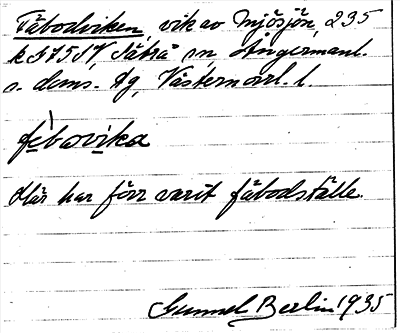 Fäbodviken, vik av Mjösjön, 235
k 575 SV, Sätrå sn Ångermanl.
s. doms. dg, Västernorrl. l.
fèbovika
Här har förr varit fäbodställe.
Gunnel Berlin 1935